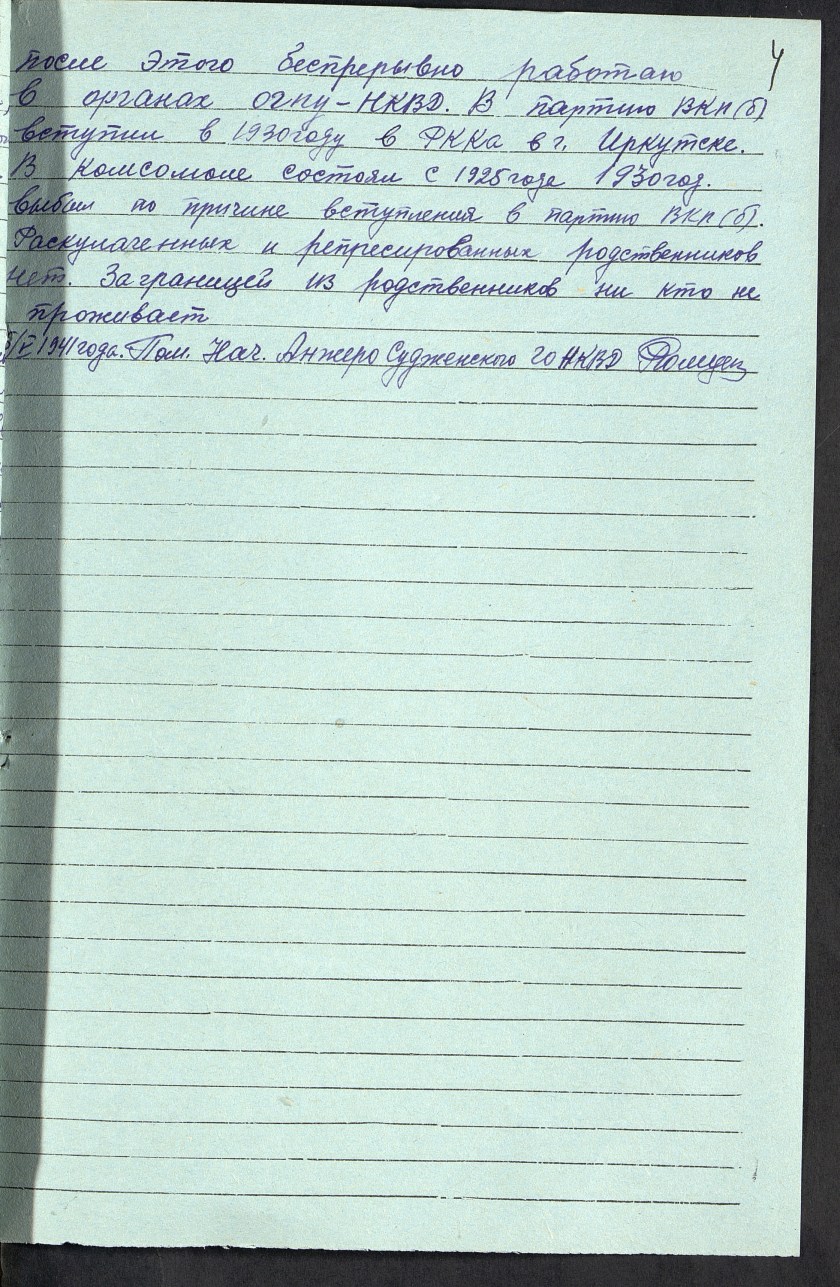 4
после этого беспрерывно работаю
в органах ОГПУ-НКВД. В партию ВКП(б)
вступил в 1930 году в РККА в г. Иркутске.
В комсомоле состоял с 1925 года 1930 год.
выбыл по причине вступления в партию ВКП(б).
Раскулаченных и репресированных родственников
нет. Заграницей из родственников ни кто не
проживает
/V 1941 года. Пом. Нач. Анжеро Судженского ГО НКВД